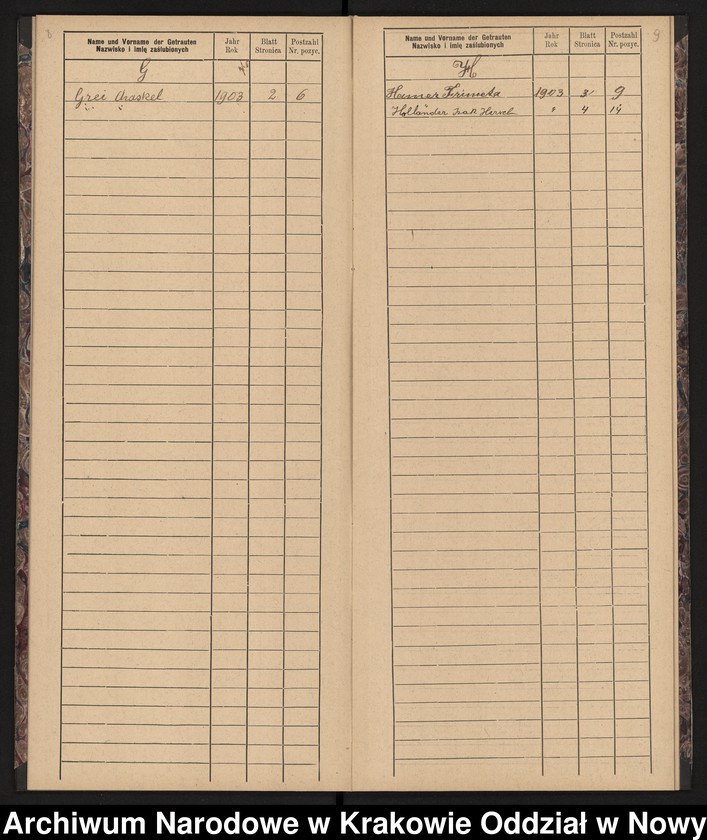 8
Name und Vorname der Getrauten
Nazwisko i imię zaślubionych
Jahr
Rok
Blatt
Stronica
Postzahl
Nr. pozyc.
G
Grei Chaskel 1903 2 6
9
Name und Vorname der Getrauten
Nazwisko i imię zaślubionych
Jahr
Rok
Blatt
Stronica
Postzahl
Nr. pozyc.
H
Hamer 1903 3 9
Holländer Isak Hersch " 4 14
Archiwum Narodowe w Krakowie Oddział w Nowy